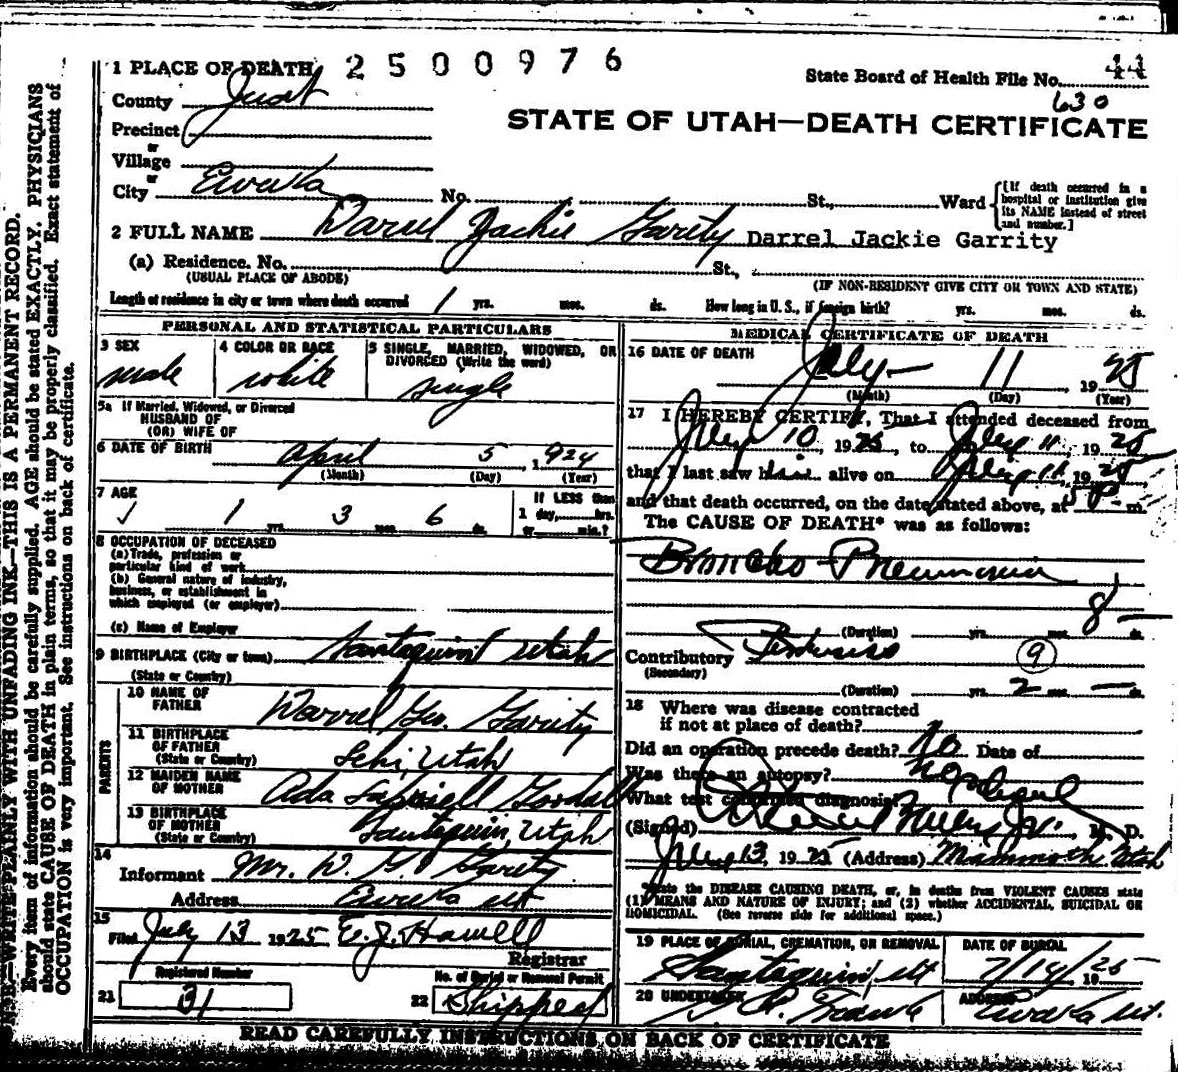 1 PLACE OF DEATH 2500976
State Board of Health File No. 44
630
County Juab
STATE OF UTAH—DEATH CERTIFICATE
Precinct
or
Village
or
City Eureka No. St., Ward
[If death occurred in a hospital or institution give its NAME instead of street and number.]
2 FULL NAME Darrel Jackie Garity Darrel Jackie Garrity
(a) Residence. No. St.,
(USUAL PLACE OF ABODE) (IF NON-RESIDENT GIVE CITY OR TOWN AND STATE)
Length of residence in city or town where death occurred 1 yrs. mos. ds. How long in U. S., if foreign birth? yrs. mos. ds.
PERSONAL AND STATISTICAL PARTICULARS
3 SEX male
4 COLOR OR RACE white
5 SINGLE, MARRIED, WIDOWED, OR DIVORCED (Write the word) single
5a If Married, Widowed, or Divorced
HUSBAND OF
(OR) WIFE OF
6 DATE OF BIRTH April 5, 1924
(Month) (Day) (Year)
7 AGE 1 yrs. 3 mos. 6 ds.
If LESS than 1 day, hrs. or min.?
8 OCCUPATION OF DECEASED
(a) Trade, profession or particular kind of work
(b) General nature of industry, business, or establishment in which employed (or employer)
(c) Name of Employer
9 BIRTHPLACE (City or town) Santaquin Utah
(State or Country)
PARENTS
10 NAME OF FATHER Darrel Geo. Garity
11 BIRTHPLACE OF FATHER Lehi, Utah
(State or Country)
12 MAIDEN NAME OF MOTHER Ada
13 BIRTHPLACE OF MOTHER Santaquin, Utah
(State or Country)
14 Informant Mr. D. G. Garity
Address Eureka Ut
15 Filed July 13 1925 E. J. Howell
Registrar
Registered Number
21 31
No. of Burial or Removal Permit
22 Shipped
MEDICAL CERTIFICATE OF DEATH
16 DATE OF DEATH July 11, 1925
(Month) (Day) (Year)
17 I HEREBY CERTIFY, That I attended deceased from
July 10, 1925, to July 11, 1925
that I last saw him alive on July 11, 1925
and that death occurred, on the date stated above, at 5 P m.
The CAUSE OF DEATH* was as follows:
Broncho-Pneumonia
8
(Duration) yrs. mos. ds.
Contributory Pertussis 9
(Secondary)
(Duration) yrs. 2 mos. — ds.
18 Where was disease contracted
if not at place of death?
Did an operation precede death? No Date of
Was there an autopsy? no
What test confirmed diagnosis?
(Signed) M. D.
July 13, 1925 (Address) Mammoth, Utah
*State the DISEASE CAUSING DEATH, or, in deaths from VIOLENT CAUSES state
(1) MEANS AND NATURE OF INJURY; and (2) whether ACCIDENTAL, SUICIDAL OR
HOMICIDAL. (See reverse side for additional space.)
19 PLACE OF BURIAL, CREMATION, OR REMOVAL Santaquin, Ut
DATE OF BURIAL 7/14/1925
20 UNDERTAKER
ADDRESS Eureka Ut.
READ CAREFULLY INSTRUCTIONS ON BACK OF CERTIFICATE
WRITE PLAINLY WITH UNFADING INK—THIS IS A PERMANENT RECORD.
Every item of information should be carefully supplied. AGE should be stated EXACTLY. PHYSICIANS
should state CAUSE OF DEATH in plain terms, so that it may be properly classified. Exact statement of
OCCUPATION is very important. See instructions on back of certificate.